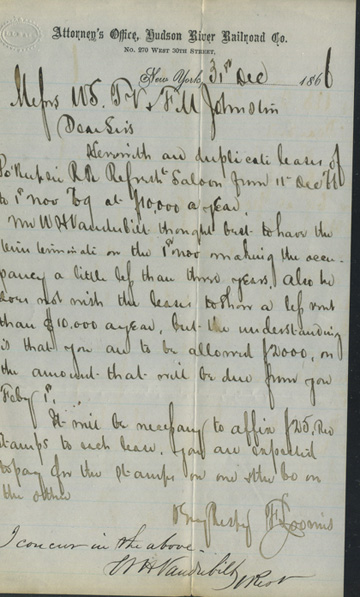 Attorney's Office, Hudson River Railroad Co.
No. 270 West 30th Street,
New York, 31st Dec 1866
Messrs W. T. V & F. M Johnston
Dear Sirs
Herewith are duplicate leases of
Po'Keepsie RR Refresht Saloon from 15 Decr
to 1st Nov 69 at $10,000 a year.
Mr W H Vanderbilt thought best to have the
term terminate on the 1st Nov making the occu-
pancy a little less than three years, also he
does not wish the leases to show a less rent
than $10.000 a year, but the understanding
is that you are to be allowed $2000, on
the amount that will be due from you
Feby 1st.
It will be necessary to affix $25, Rev
stamps to each lease. you are expected
to pay for the stamps on one & the Co on
the other
Very Respy Loomis
I concur in the above.
W H Vanderbilt
V Prest